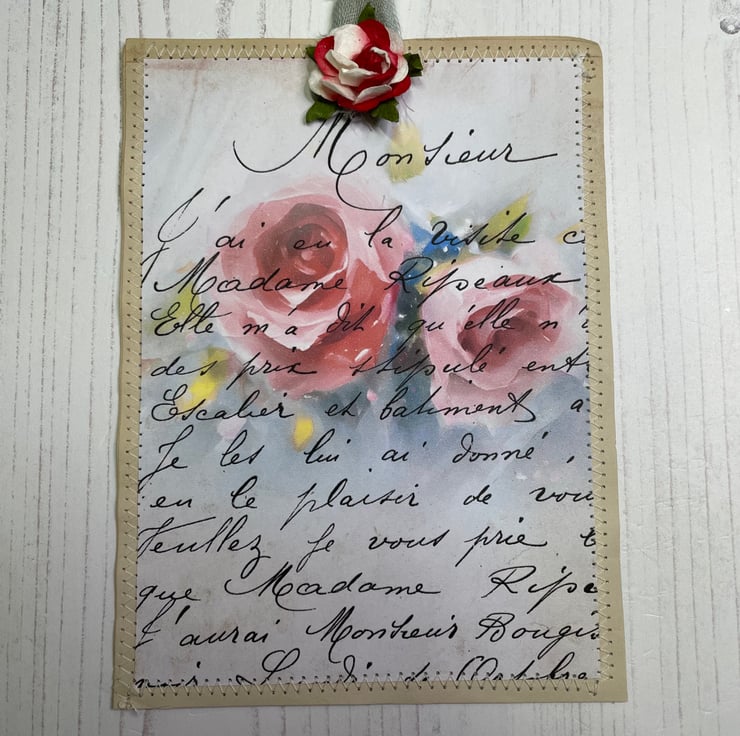 Monsieur
J'ai eu la visite c
Madame Ripeaux
Elle m'a dit qu'elle n'
des prix stipulé ent
Escalier et batiments a
Je les lui ai donné,
eu le plaisir de vou
Veuillez je vous prie
que Madame Ripe
J'aurai Monsieur Bougi